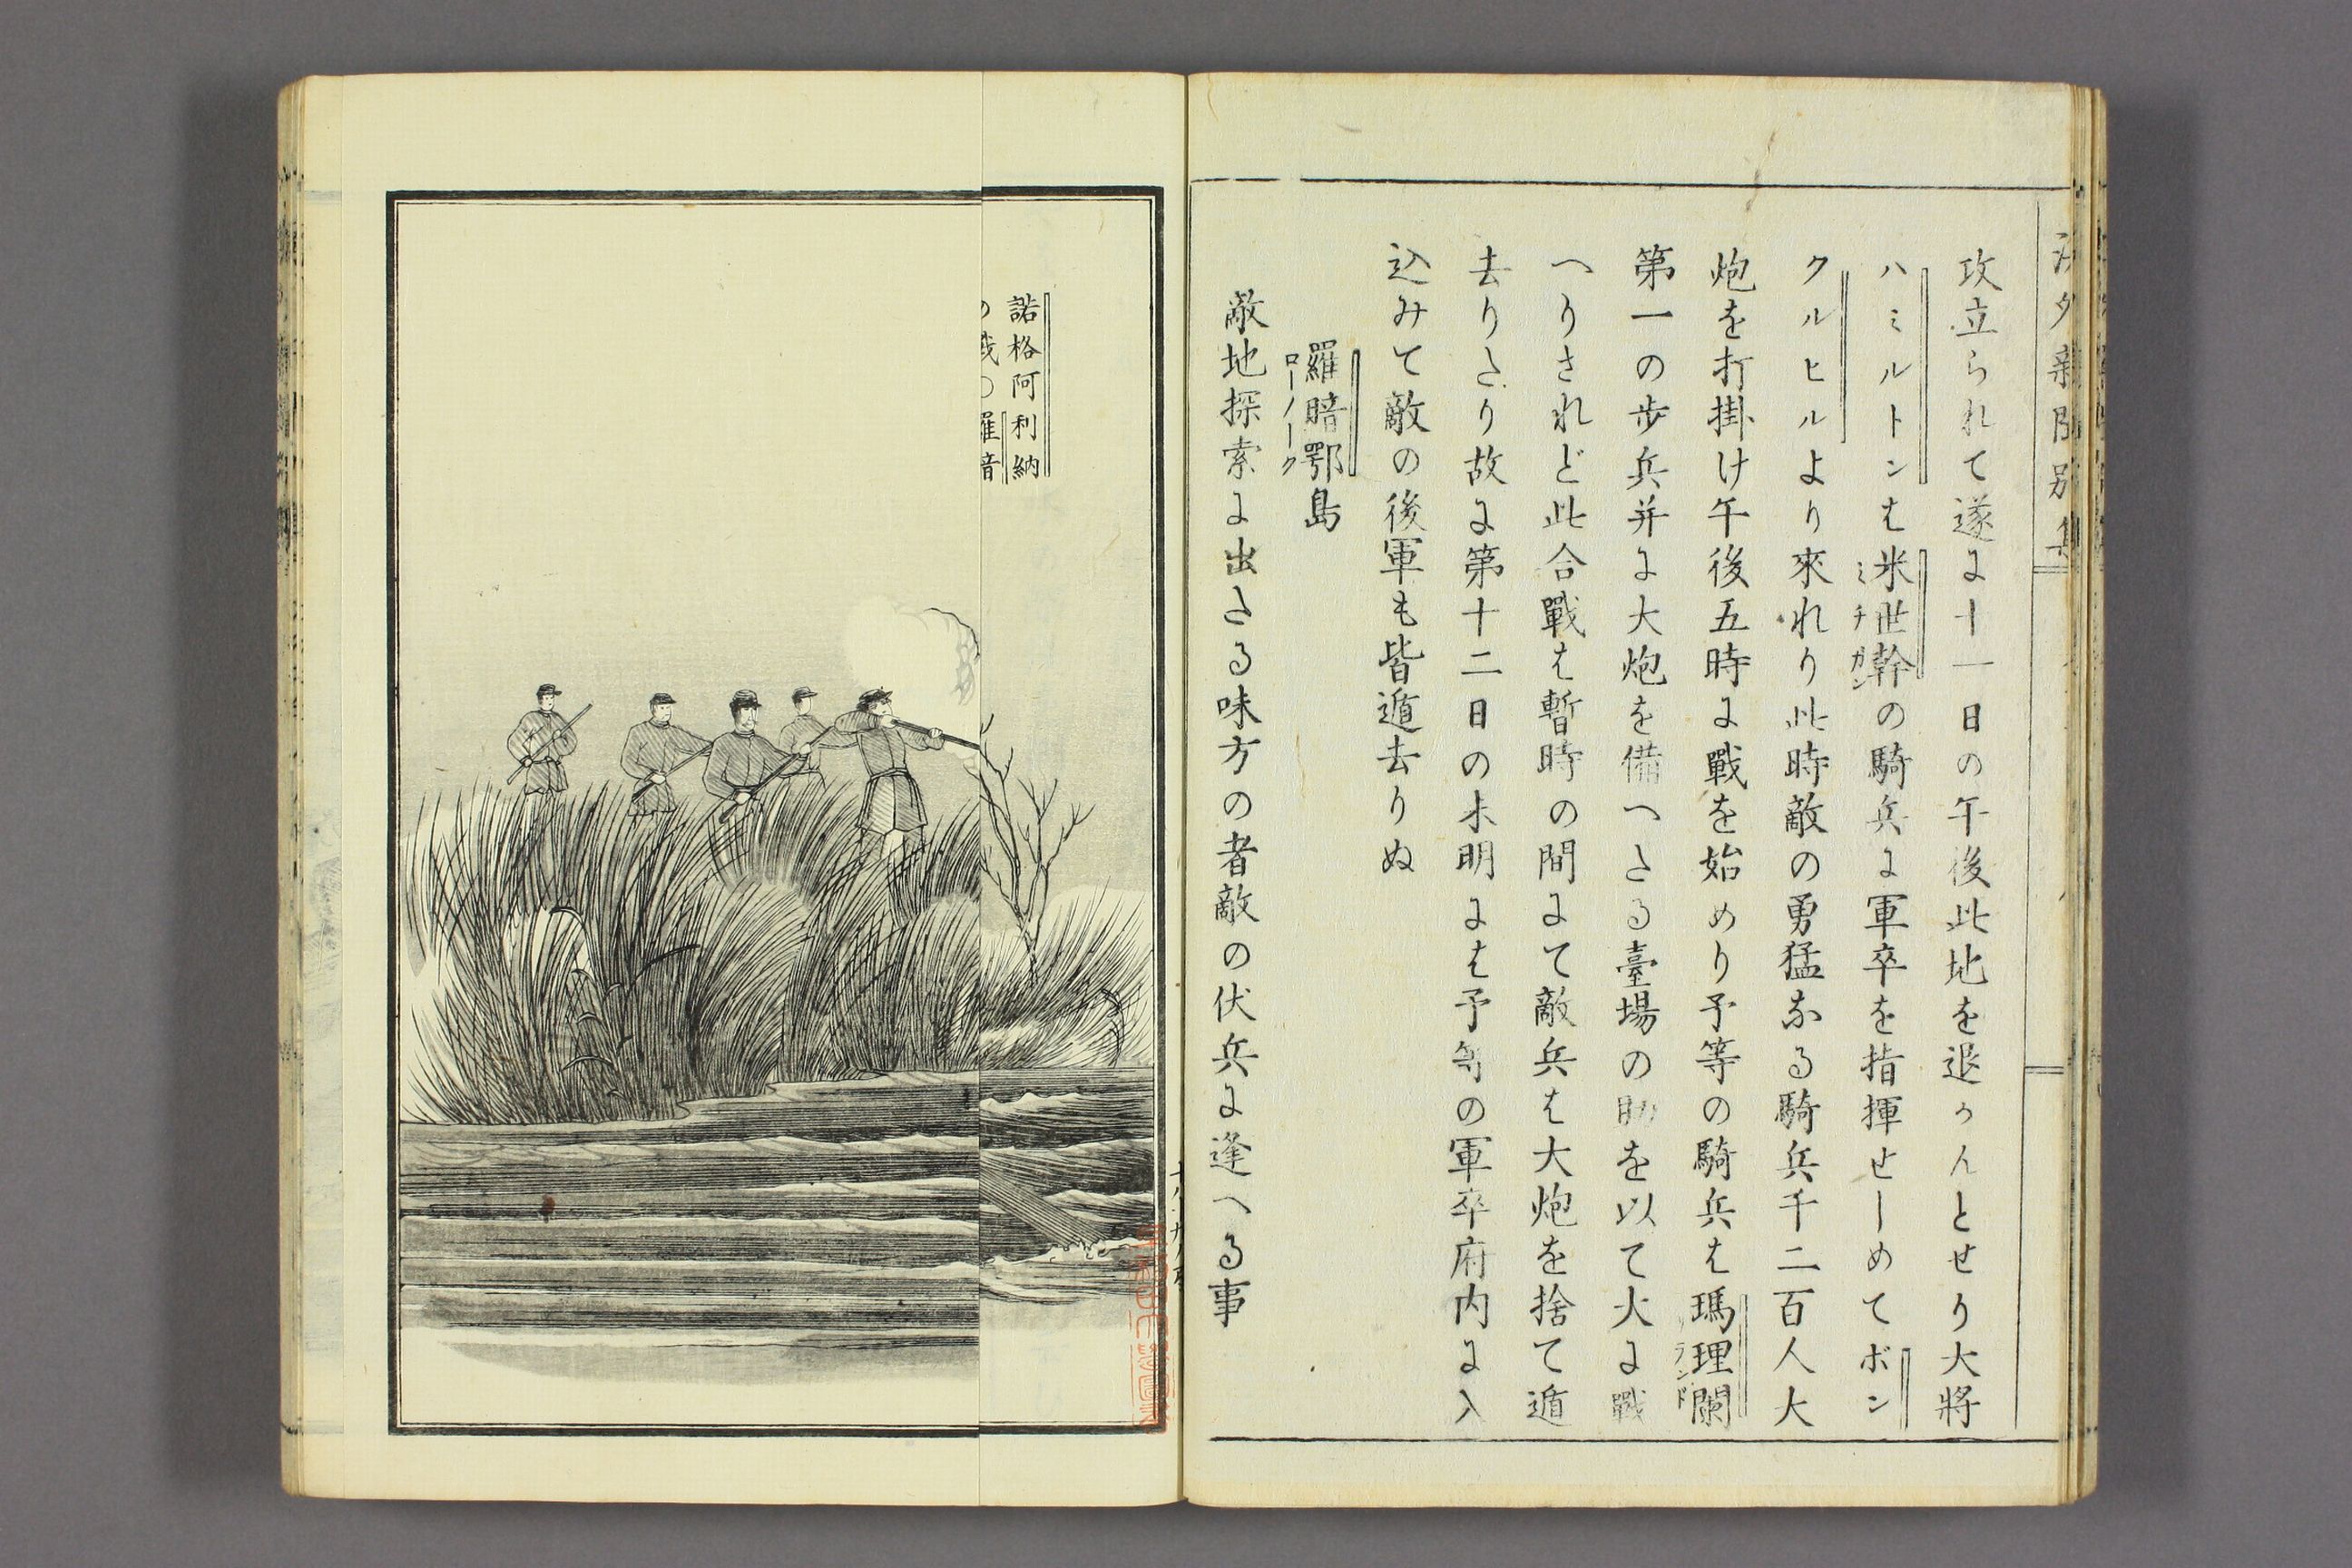 攻立られて遂に十一日の午後此地を退かんとせり大將
ハミルトンは米世幹の騎兵に軍卒を指揮せしめてボン
ミチガン
クルヒルより來れり此時敵の勇猛なる騎兵千二百人大
炮を打掛け午後五時に戰を始めり予等の騎兵は瑪理闌
リランド
第一の歩兵并に大炮を備へたる臺場の助を以て大に戰
へりされど此合戰は暫時の間にて敵兵は大炮を捨て遁
去りたり故に第十二日の未明には予等の軍卒府内に入
込みて敵の後軍も皆遁去りぬ
羅暗鄂島
ローノーク
敵地探索に出たる味方の者敵の伏兵に逢へる事
諾格阿利納
の戰〇羅暗